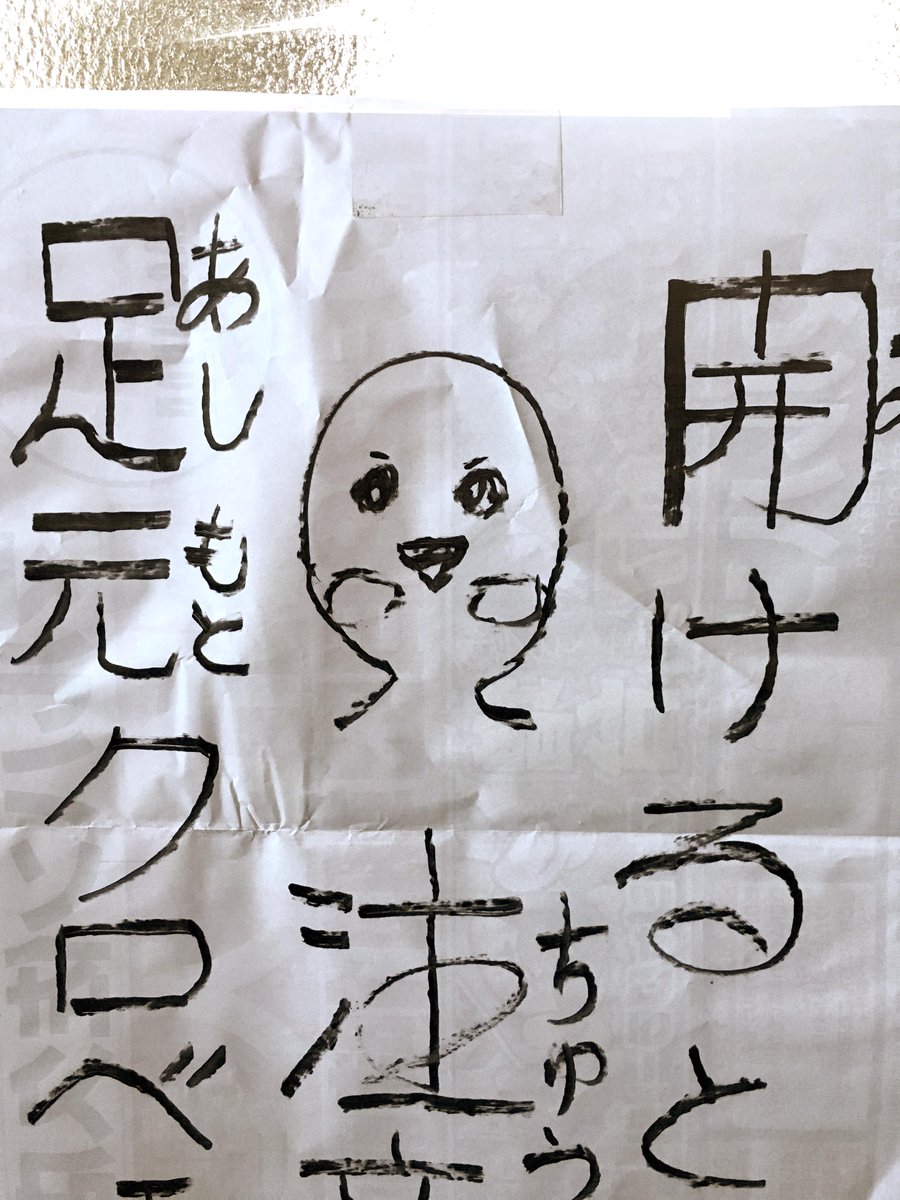 開けると
ちゅう
注
あし もと
足元クロベ